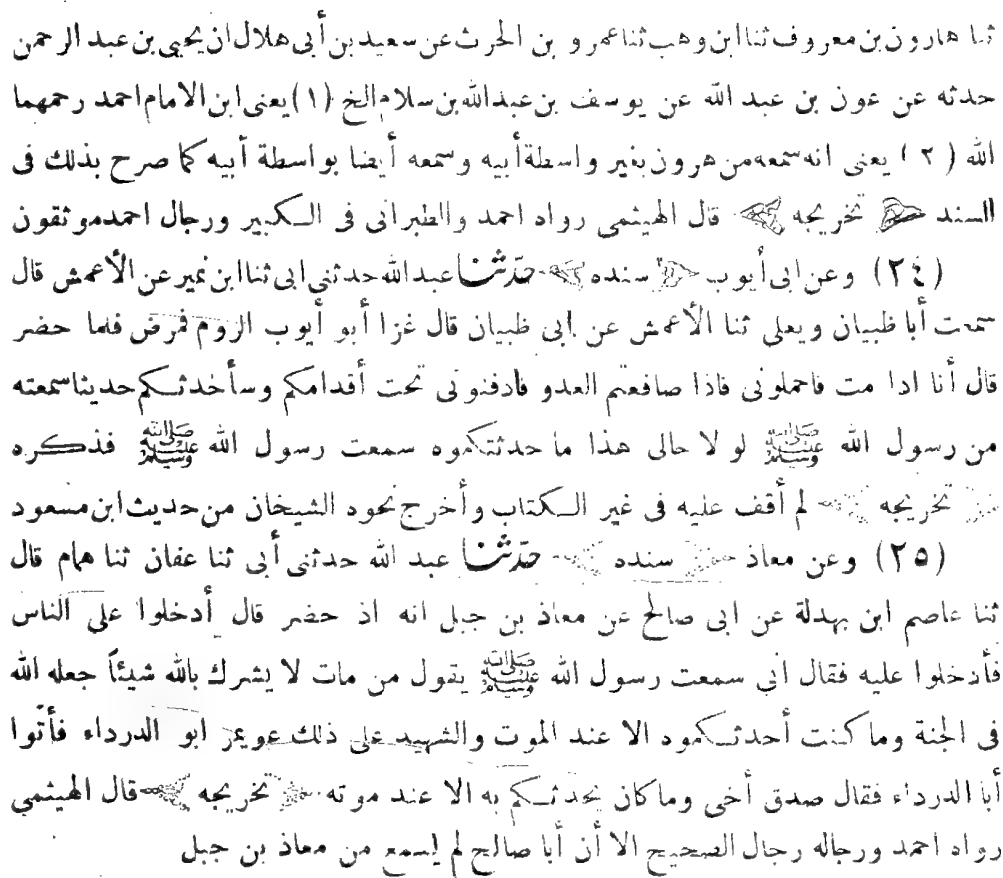 ثنا هارون بن معروف ثنا ابن وهب ثنا عمرو بن الحرث عن سعيد بن أبى هلال ان يحيى بن عبد الرحمن
حدثه عن عون بن عبد الله عن يوسف بن عبد الله بن سلام الخ (١) يعنى ابن الامام احمد رحمهما
الله (٢) يعنى انه سمعه من هرون بغير واسطة أبيه وسمعه أيضا بواسطة أبيه كما صرح بذلك فى
السند تخريجه قال الهيثمى رواه احمد والطبرانى فى الكبير ورجال احمد موثقون
(٢٤) وعن ابى أيوب سنده حدثنا عبد الله حدثنى ابى ثنا ابن نمير عن الأعمش قال
سمعت أبا ظبيان ويعلى ثنا الأعمش عن ابى ظبيان قال غزا أبو أيوب الروم فمرض فلما حضر
قال أنا اذا مت فاحملونى فاذا صافعتم العدو فادفنونى تحت أقدامكم وسأحدثكم حديثا سمعته
من رسول الله ﷺ لو لا حالى هذا ما حدثتكموه سمعت رسول الله ﷺ فذكره
تخريجه لم أقف عليه فى غير الكتاب وأخرج نحوه الشيخان من حديث ابن مسعود
(٢٥) وعن معاذ سنده حدثنا عبد الله حدثنى أبى ثنا عفان ثنا همام قال
ثنا عاصم ابن بهدلة عن ابى صالح عن معاذ بن جبل انه اذ حضر قال أدخلوا على الناس
فأدخلوا عليه فقال انى سمعت رسول الله ﷺ يقول من مات لا يشرك بالله شيئاً جعله الله
فى الجنة وما كنت أحدثكموه الا عند الموت والشهيد على ذلك عويمر ابو الدرداء فأتوا
أبا الدرداء فقال صدق أخى وماكان يحدثكم به الا عند موته تخريجه قال الهيثمي
رواه احمد ورجاله رجال الصحيح الا أن أبا صالح لم يسمع من معاذ بن جبل